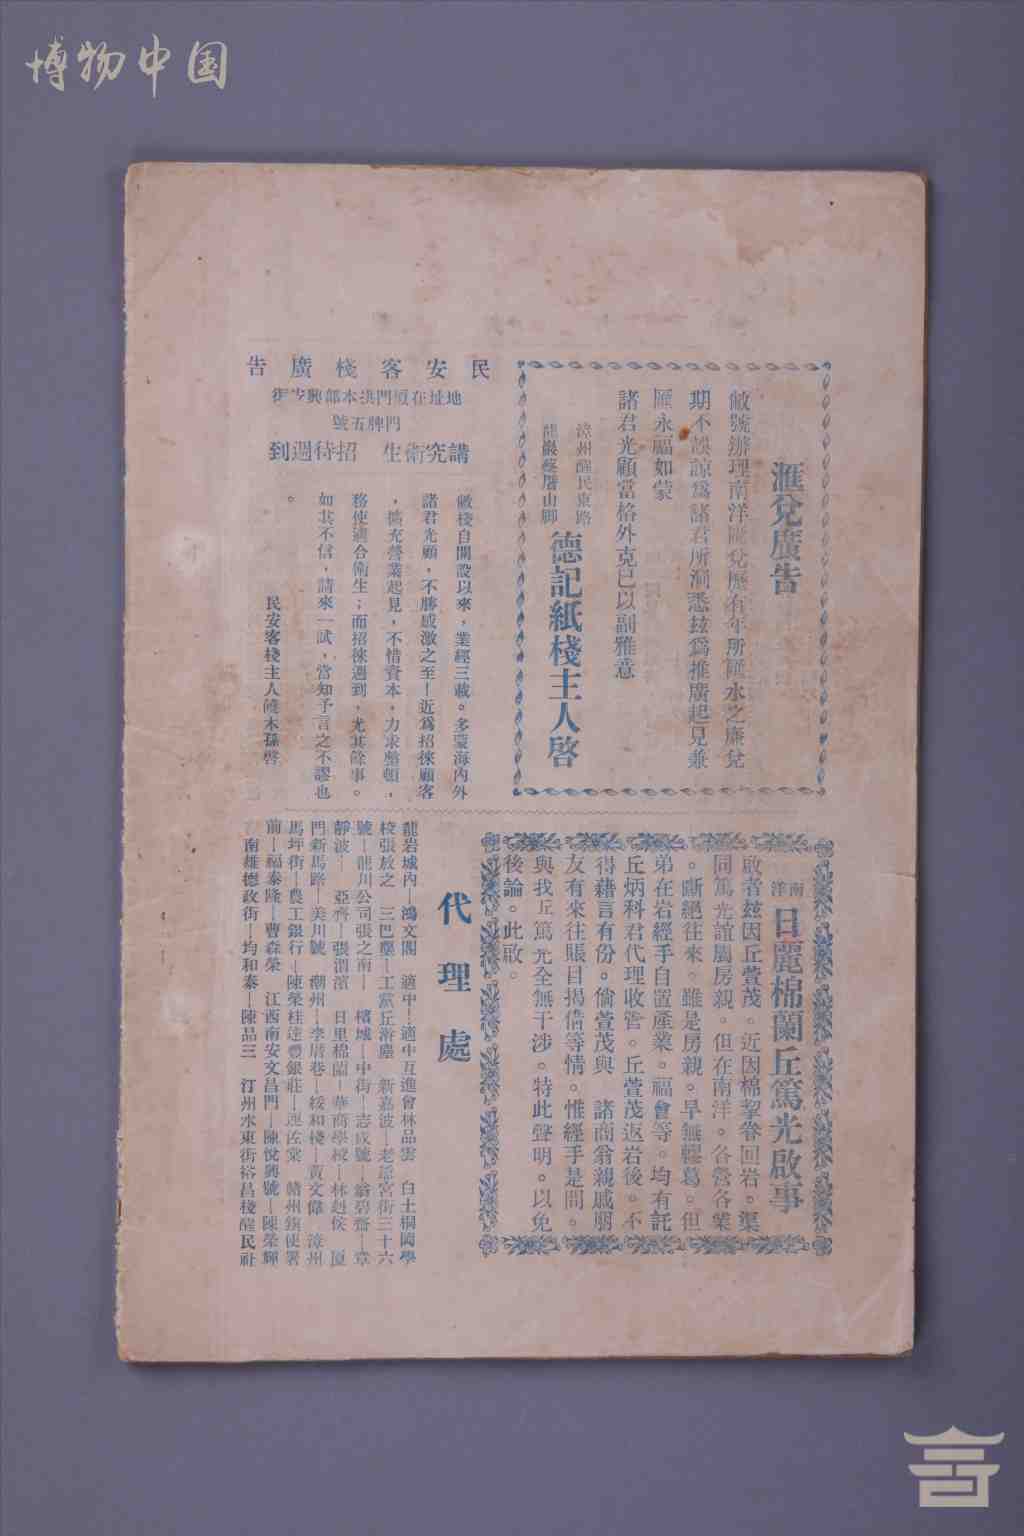 博物中国
滙兌廣告
敝號辦理南洋匯兌歷有年所匯水之廉兌
期不誤諒爲諸君所洞悉玆爲推廣起見兼
匯永福如蒙
諸君光顧當格外克己以副雅意
漳州醒民東路
德記紙棧主人啓
民安客棧廣告
地址在厦門洪本部興安街
門牌五號
講究衛生 招待週到
敝棧自開設以來，業經三載。多蒙海內外
諸君光顧，不勝感激之至！近爲招徠顧客
，擴充營業起見，不惜資本，力求整頓，
務使適合衛生；而招徠週到，尤其餘事。
如其不信，請來一試，當知予言之不謬也
。
民安客棧主人 木孫啓
南洋 日麗棉蘭丘篤光啟事
啟者玆因丘萱茂。近因棉挈眷回岩。渠
同篤光誼屬房親。但在南洋。各營各業
。斷絕往來。雖是房親。早無轇葛。但
弟在岩經手自置產業。福會等。均有託
丘炳科君代理收管。丘萱茂返岩後。不
得藉言有份。倘萱茂與 諸商翁親戚朋
友有來往賬目揭借等情。惟經手是問。
與我丘篤光全無干涉。特此聲明。以免
後論。此啟。
代理處
龍岩城內—鴻文閣 適中—適中互進會林品雲 白土桐岡學
校張放之 三巴壟—工黨丘濟塵 新嘉波—老 宮街三十六
號—龍川公司張之南— 檳城—中街—志成號—翁碧齋—章
靜波— 亞齊—張渭濱 日里棉蘭—華商學校—林 侯 厦
門新馬路—美川號 潮州—李厝巷—綏和棧—黃文偉 漳州
馬坪街—農工銀行—陳榮桂達豐銀莊— 棠 贛州鎮使署
前—福泰隆—曹森榮 江西南安文昌門—陳悅興號—陳榮輝
南雄德政街—均和泰—陳品三 汀州水東街裕昌棧醒民社